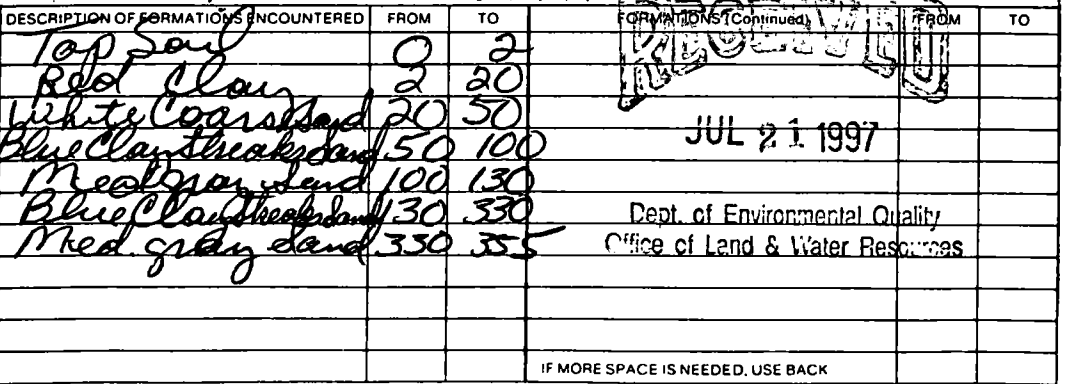 DESCRIPTION OF FORMATIONS ENCOUNTERED FROM TO FORMATIONS (Continued) FROM TO
Top Soil 0 2
Red Clay 2 20
White Coarse Sand 20 50
Blue Clay Streaks Sand 50 100
Med gray Sand 100 130
Blue Clay Streaks Sand 130 330
Med. gray Sand 330 355
RECEIVED
JUL 21 1997
Dept. of Environmental Quality
Office of Land & Water Resources
IF MORE SPACE IS NEEDED, USE BACK